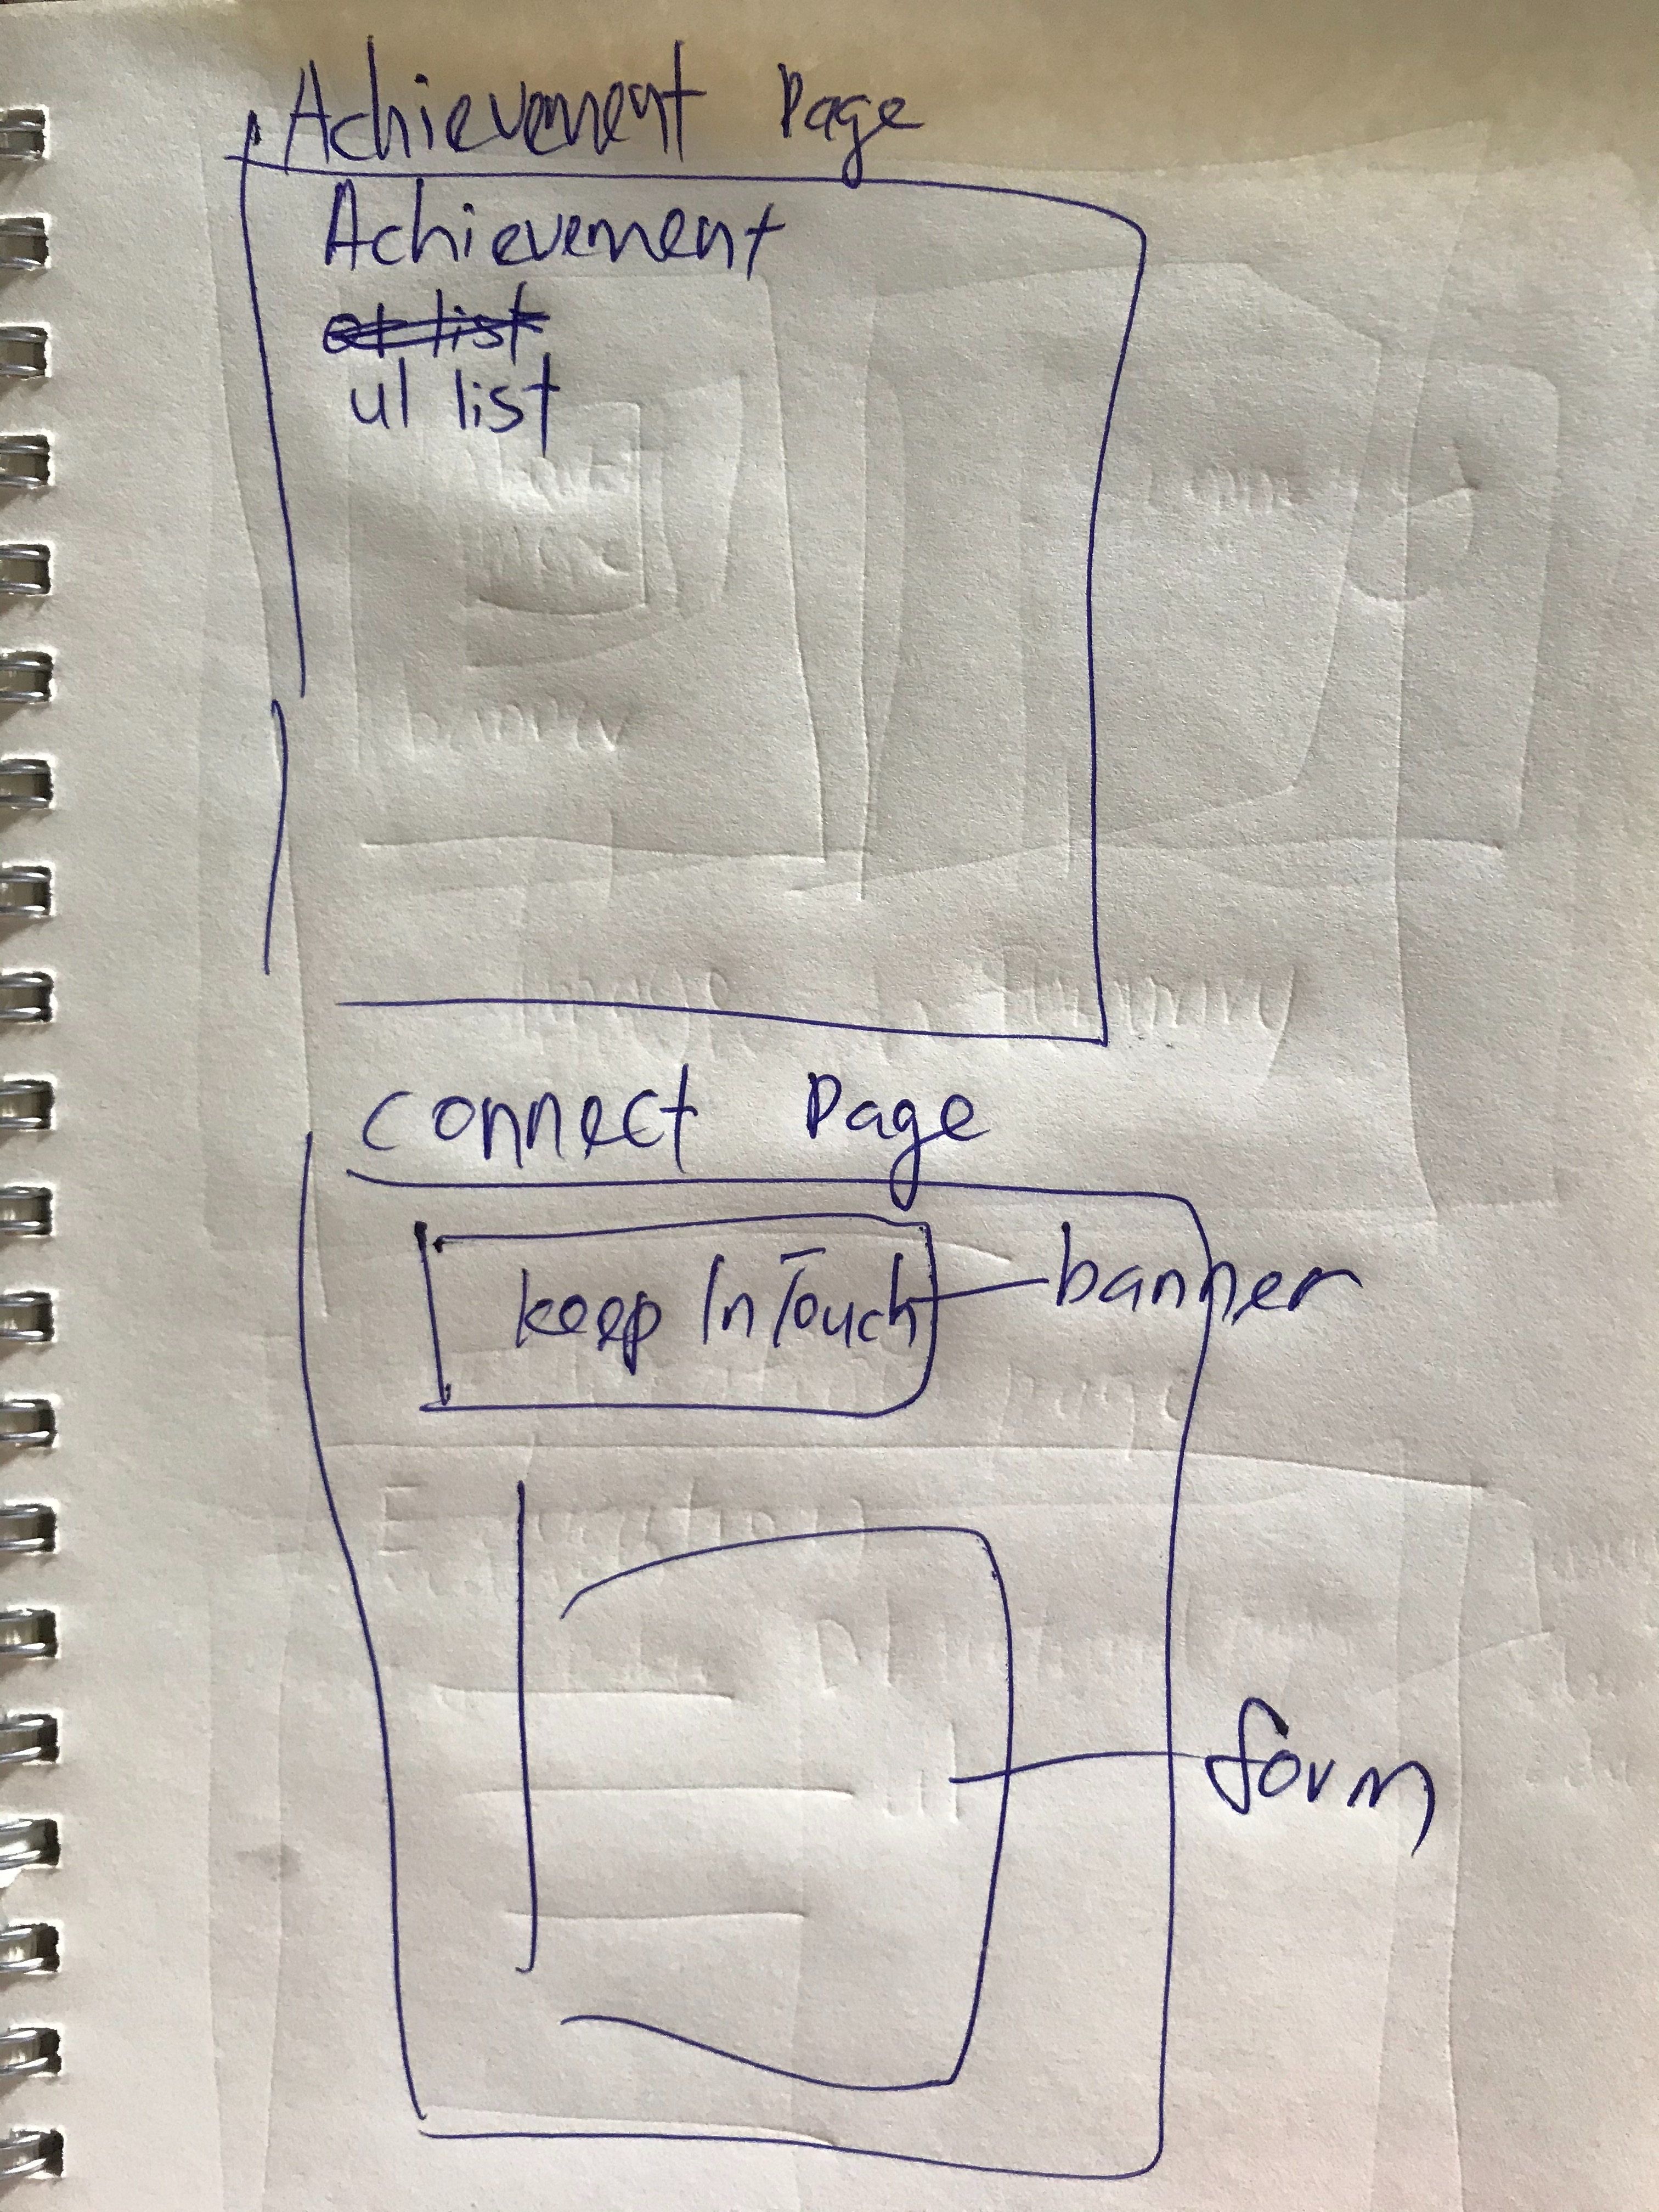 Achievement Page
Achievement
ul list
Connect Page
keep In Touch
banner
form